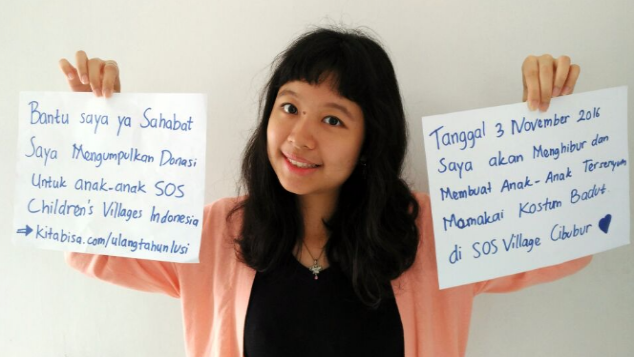 Bantu saya ya Sahabat
Saya Mengumpulkan Donasi
Untuk anak-anak SOS
Children's Villages Indonesia
→ kitabisa.com/ulangtahunlusi
Tanggal 3 November 2016
Saya akan Menghibur dan
Membuat Anak-Anak Tersenyum
Mamakai Kostum Badut
di SOS Village Cibubur ♥